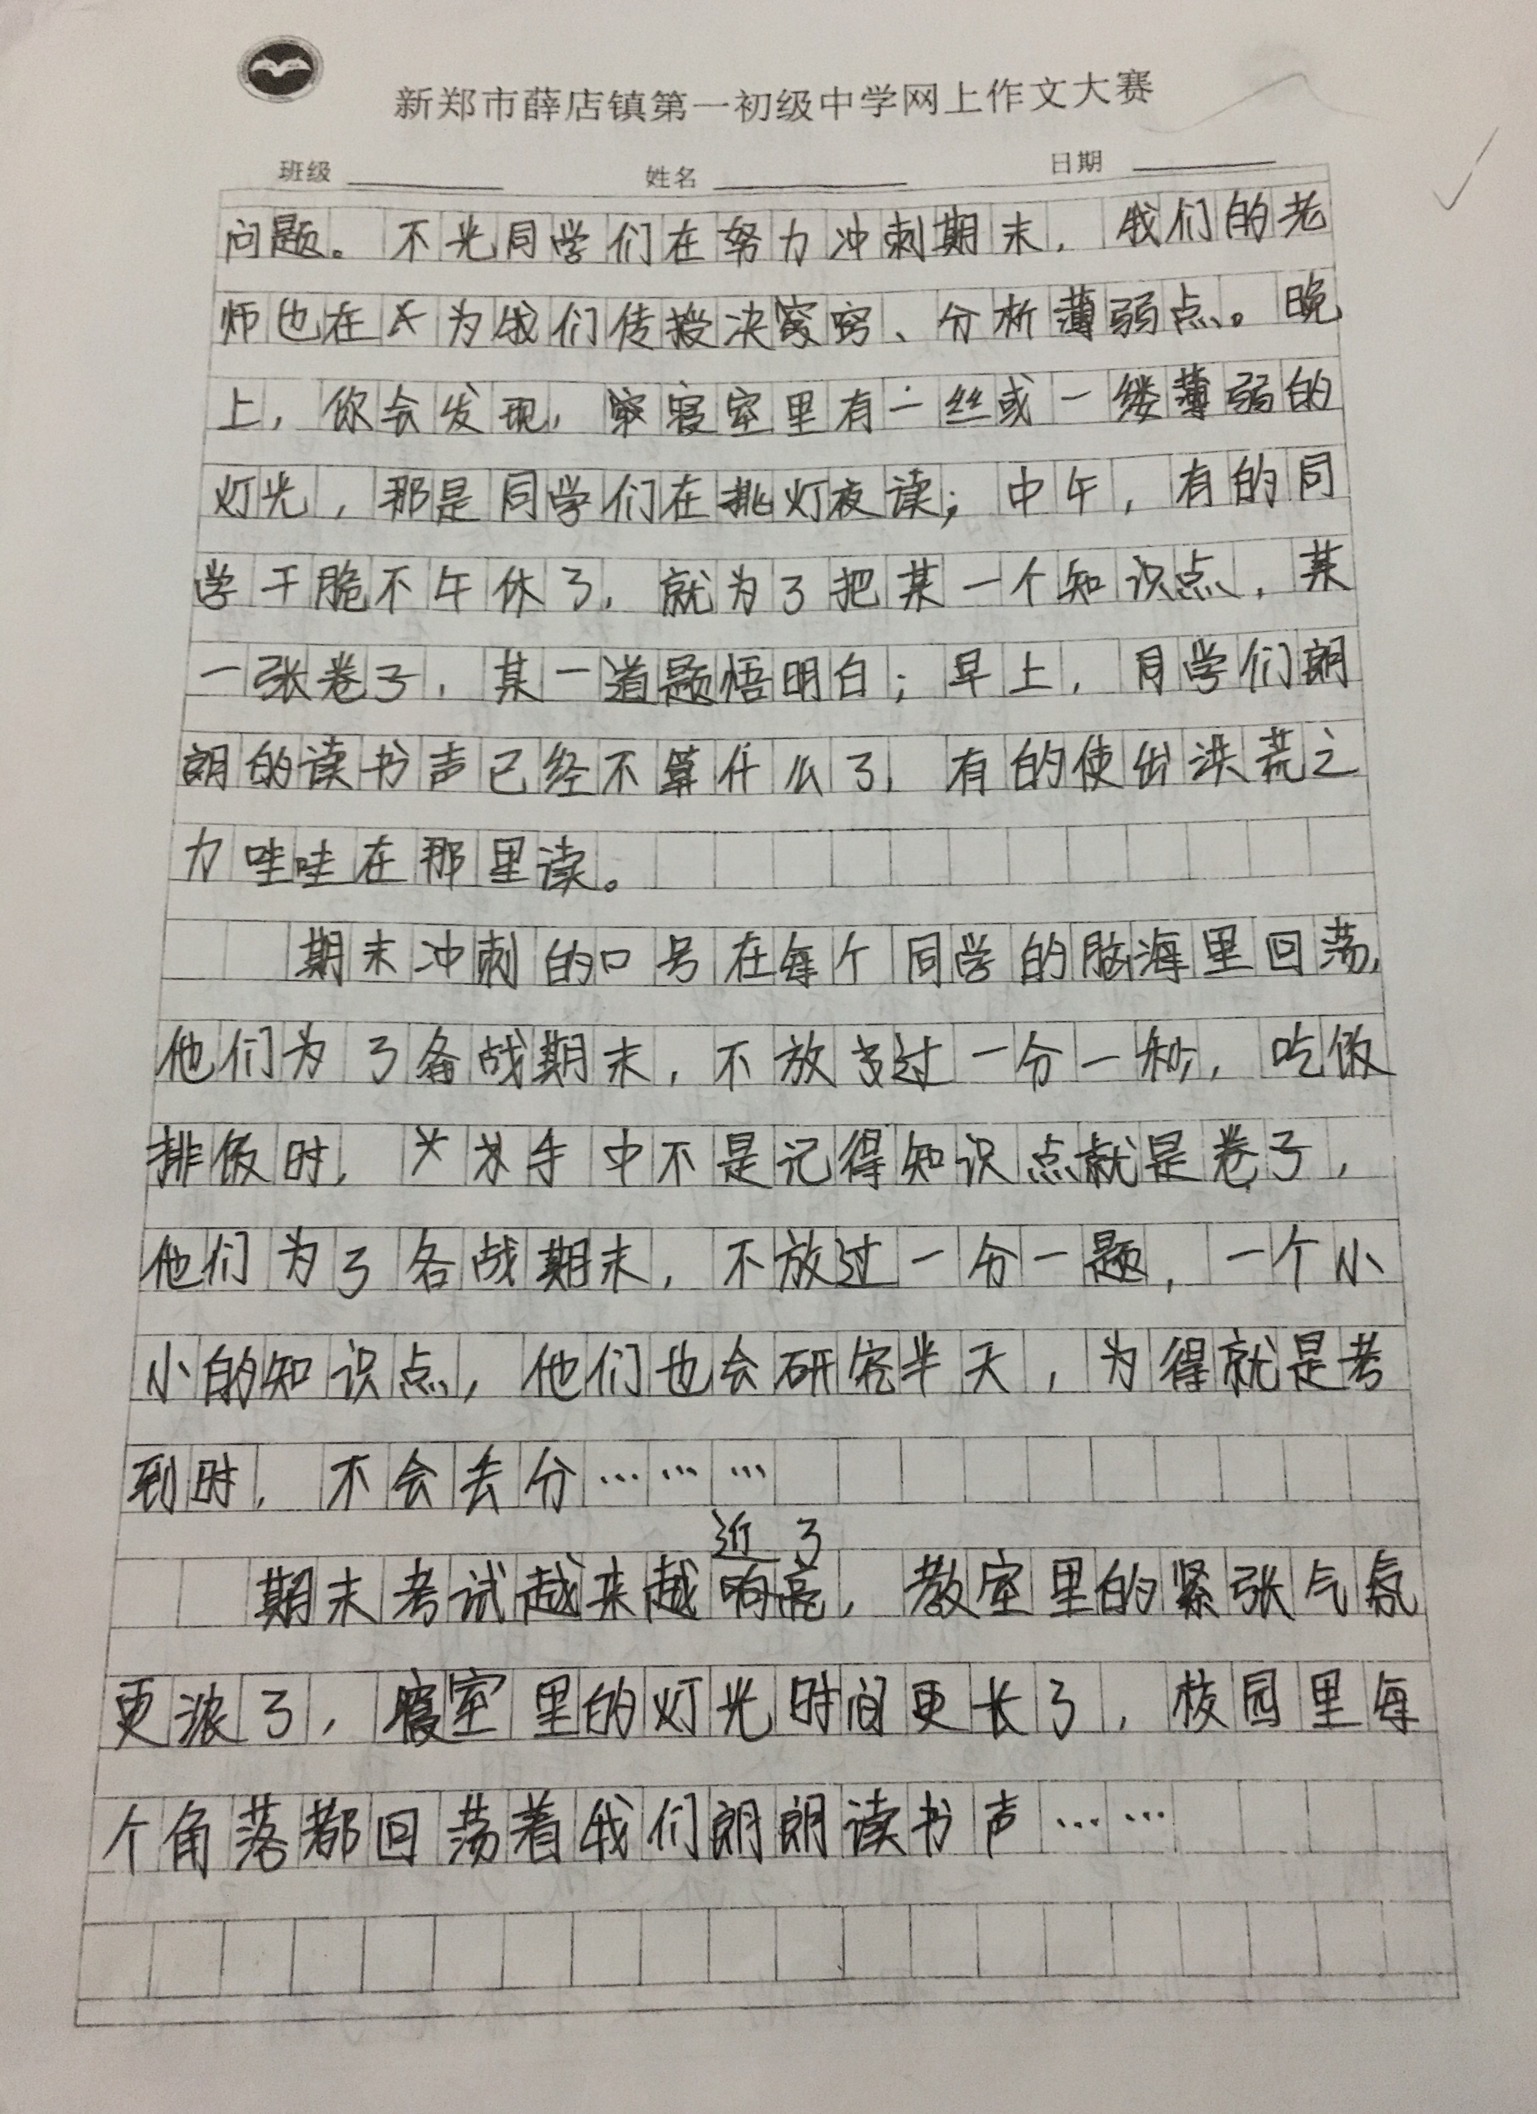 新郑市薛店镇第一初级中学网上作文大赛
班级 姓名 日期
问题。不光同学们在努力冲刺期末，我们的老
师也在为我们传授决窍、分析薄弱点。晚
上，你会发现，寝室里有一丝或一缕薄弱的
灯光，那是同学们在挑灯夜读；中午，有的同
学干脆不午休了，就为了把某一个知识点，某
一张卷子，某一道题悟明白；早上，同学们朗
朗的读书声已经不算什么了，有的使出洪荒之
力哇哇在那里读。
期末冲刺的口号在每个同学的脑海里回荡，
他们为了备战期末，不放过一分一秒，吃饭
排饭时，手中不是记得知识点就是卷子，
他们为了备战期末，不放过一分一题，一个小
小的知识点，他们也会研究半天，为得就是考
到时，不会丢分………
近了
期末考试越来越响亮，教室里的紧张气氛
更浓了，寝室里的灯光时间更长了，校园里每
个角落都回荡着我们朗朗读书声……